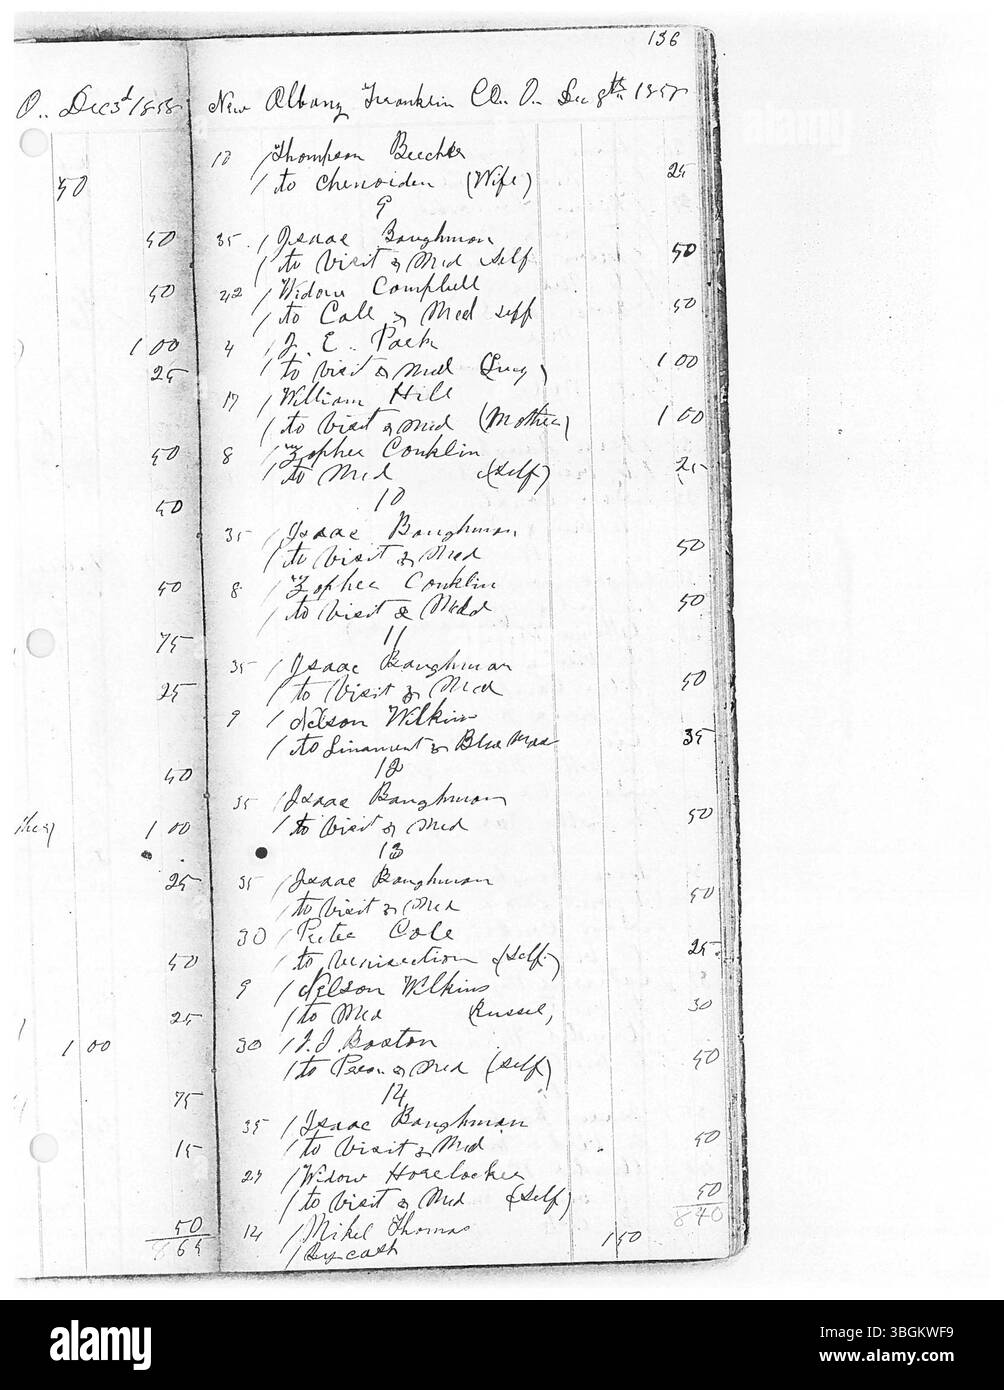 136
O.. Dec 3d 1858
New Albany Franklin CO.. O.. Dec 8th 1858
50
10 / Thompson
/ to (Wife) 25
9
50
35 / Isaac Baughman
/ to Visit & Med Self 50
50
42 / Widow Campbell
/ to Call & Med self 50
1 00
4 / E.. Park
25
/ to Visit & Med 1 00
17 / William Hill
/ to Visit & Med (Mother) 1 00
50
8 / Zopher Conklin
/ to Med (Self) 25
50
10
35 / Isaac Baughman
/ to Visit & Med 50
50
8 / Zopher Conklin
/ to Visit & Med 50
75
11
35 / Isaac Baughman
25
/ to Visit & Med 50
9 / Nelson Wilkins
/ to Linament & Blue Mass 35
50
12
35 / Isaac Baughman
1 00
/ to Visit & Med 50
13
25
35 / Isaac Baughman
/ to Visit & Med 50
30 / Peter Cole
50
/ to (Self) 25
9 / Nelson Wilkins
25
/ to Med (Russel) 30
1 00
30 / Boston
/ to & Med (Self) 50
75
14
35 / Isaac Baughman
15
/ to Visit & Med 50
27 / Widow Horelocker
/ to Visit & Med (Self) 50
50
865
840
14 / Mikel Thomas
/ By cash 1 50
alamy
Image ID: 3BGKWF9
www.alamy.com